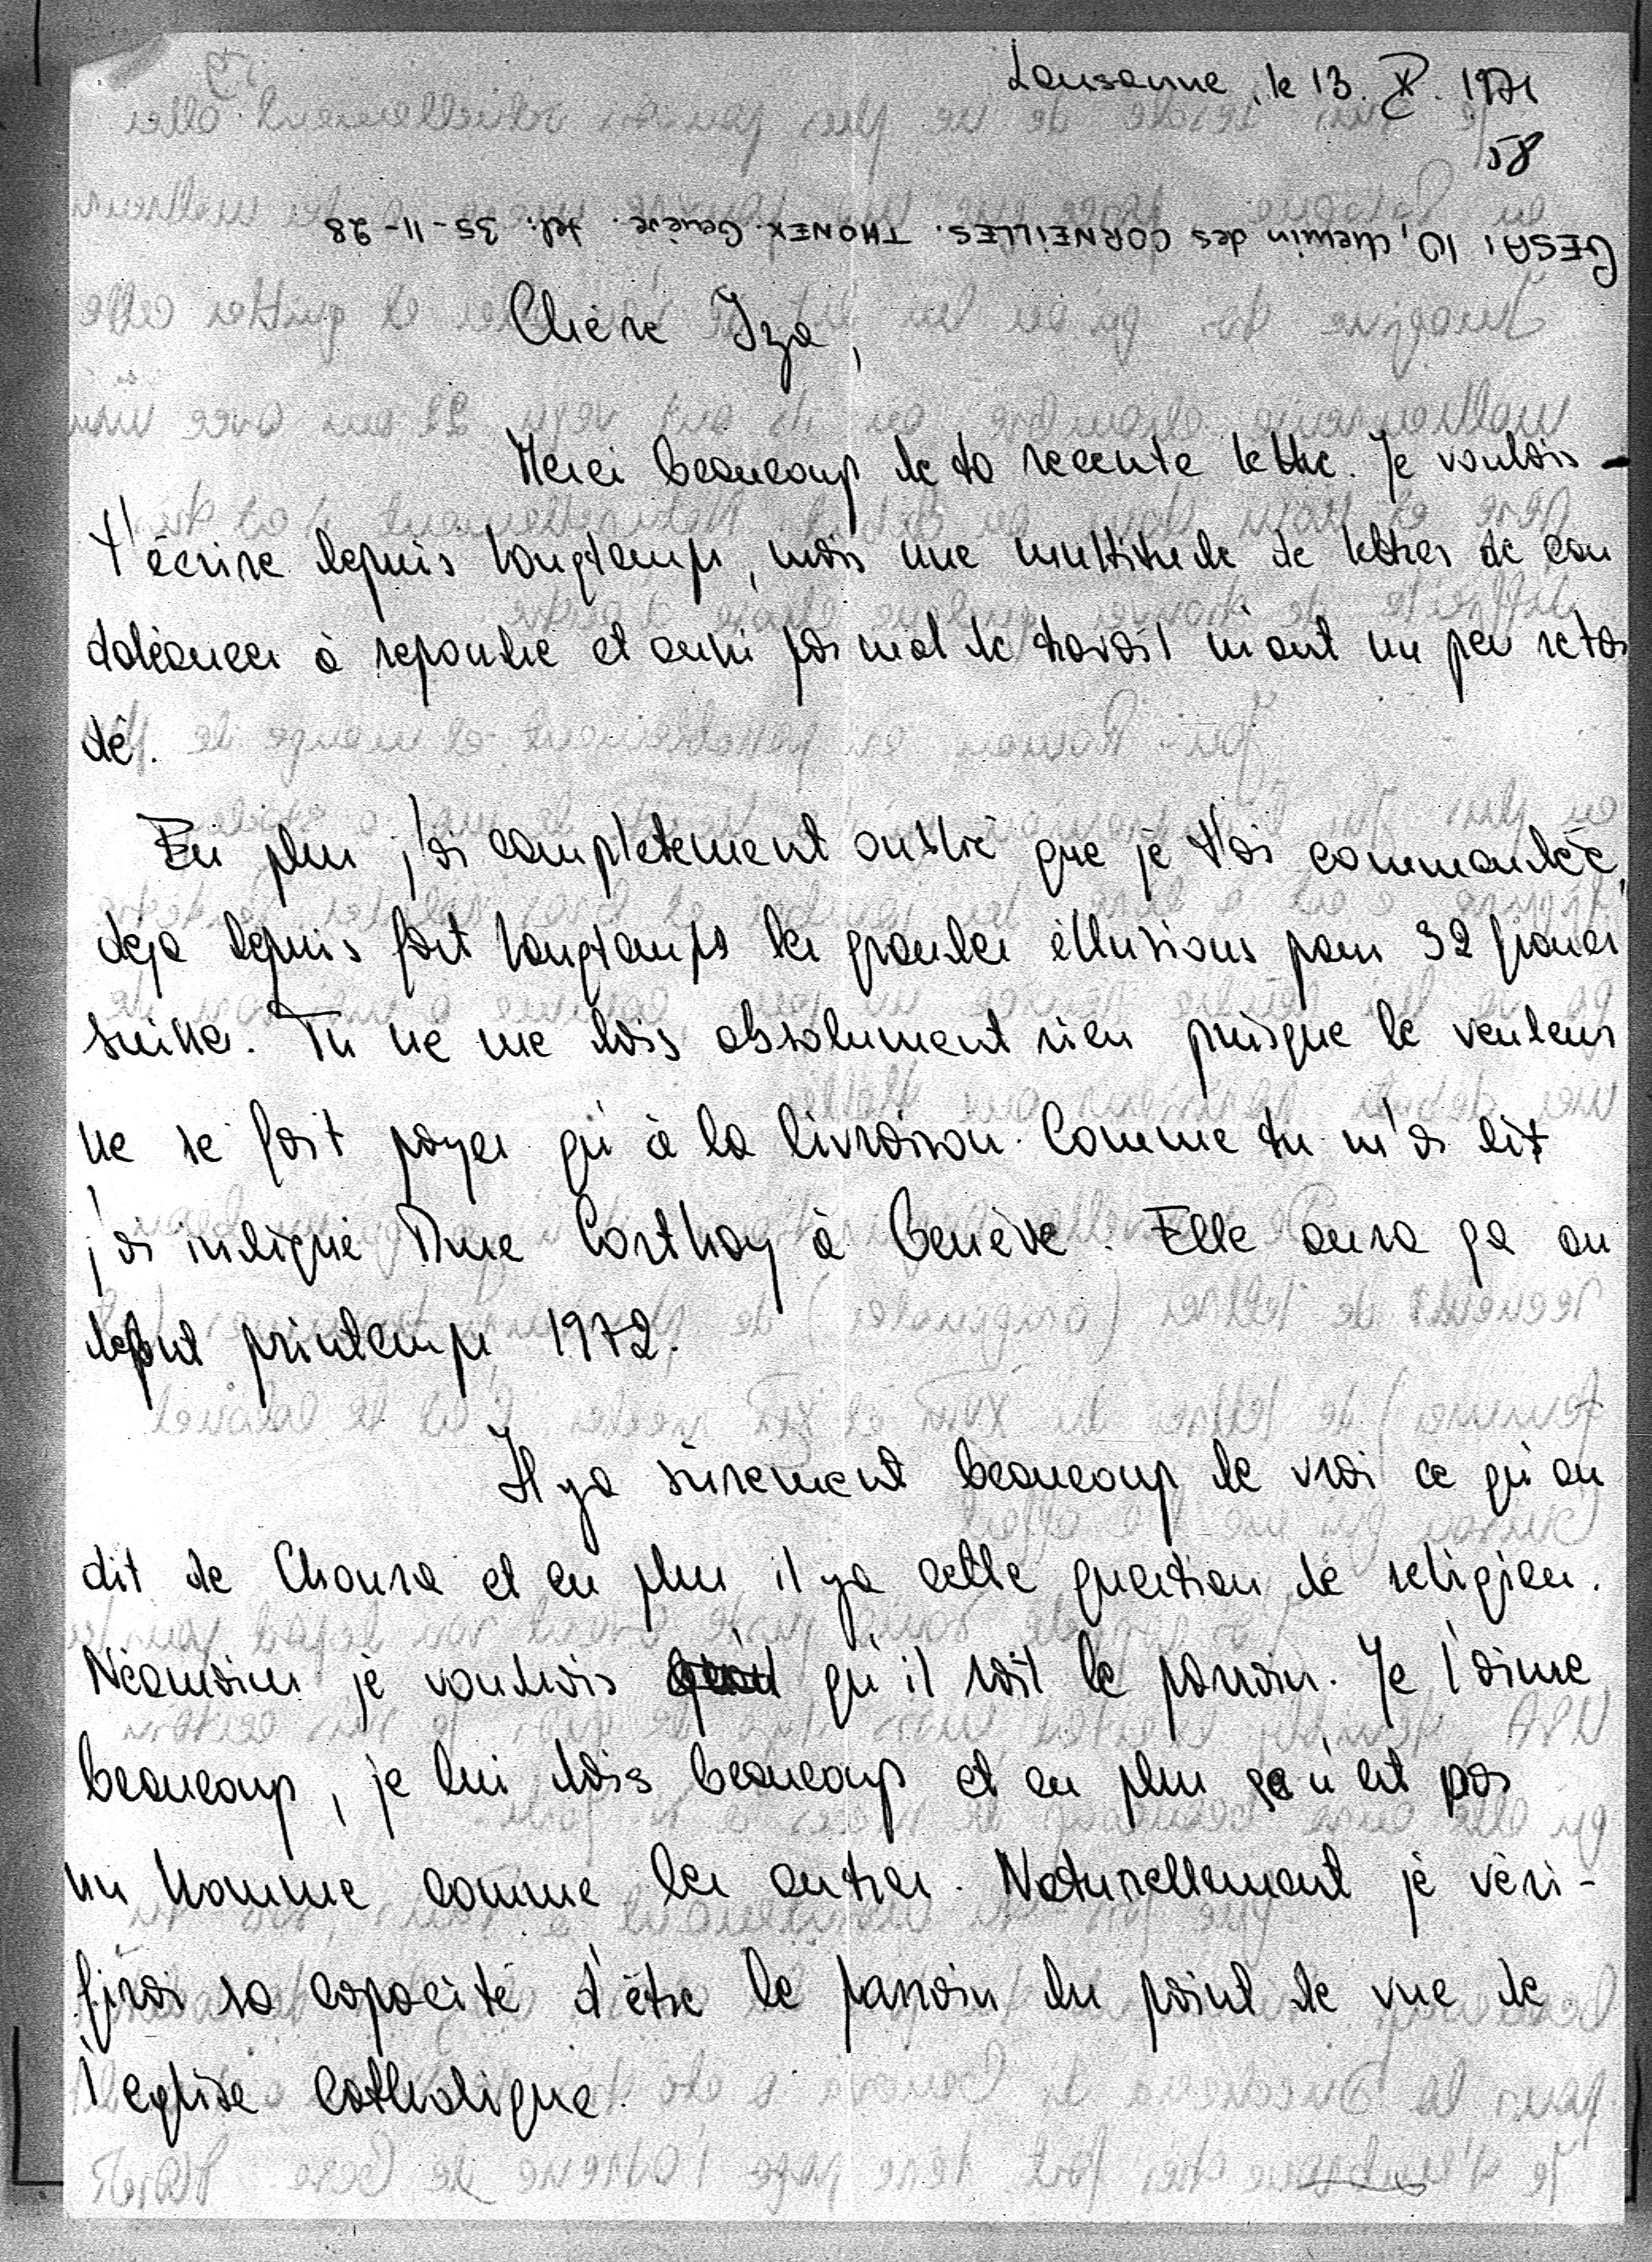 Lausanne, le 13. X. 1971
58
GESAI 10, chemin des CORNEILLES. THONEX. Genève. tel: 35-11-28
Chère Iza,
Merci beaucoup de ta recente lettre. Je voulais
t'écrire depuis longtemps, mais une multitude de lettres de con
doléances à repondre et aussi pas mal de travail m'ont un peu retar
dé.
En plus j'ai completement oublié que je t'ai commandée,
deja depuis fort longtemps les grandes illusions pour 32 francs
suisse. Tu ne me dois absolument rien puisque le vendeur
ne se fait payer qu'à la livraison. Comme tu m'as dit
j'ai indiqué Mme Corthay à Genève. Elle aura ça au
debut printemps 1972.
Il ya sûrement beaucoup de vrai ce qu'on
dit de Choura et en plus il ya cette question de religion.
Néamoins je voudrais qu'il soit le parrain. Je l'aime
beaucoup, je lui dois beaucoup et en plus ça n'est pas
un homme comme les autres. Naturellement je véri-
firai sa capacité d'être le parrain du point de vue de
l'eglise catholique.